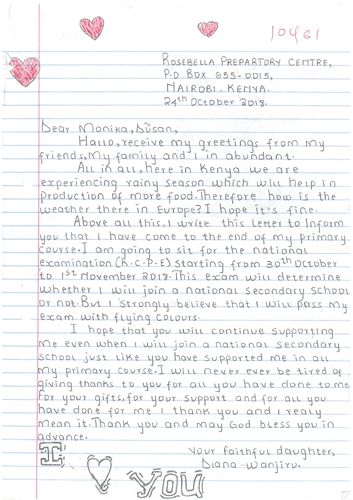 10461
ROSEBELLA PREPARTORY CENTRE,
P.O BOX 655-0015,
NAIROBI-KENYA.
24th October 2018.
Dear Monika, Susan,
Hallo, receive my greetings from my
friends, My family and I in abundant.
All in all, here in Kenya we are
experiencing rainy season which will help in
production of more food. Therefore how is the
weather there in Europe? I hope it's fine.
Above all this, I write this letter to inform
you that I have come to the end of my primary
course. I am going to sit for the national
examination (K.C.P.E) starting from 30th October
to 1st November 2018. This exam will determine
whether I will join a national secondary school
or not. But I strongly believe that I will pass my
exam with flying colours.
I hope that you will continue supporting
me even when I will join a national secondary
school just like you have supported me in all
my primary course. I will never ever be tired of
giving thanks to you for all you have done to me.
For your gifts, for your support and for all you
have done for me I thank you and I realy
mean it. Thank you and may God bless you in
advance.
Your faithful daughter,
Diana Wanjiru.
I YOU